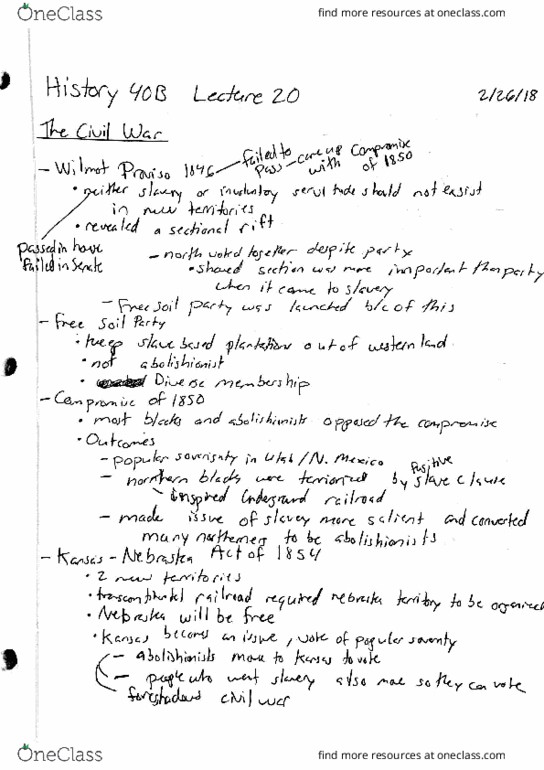 OneClass
find more resources at oneclass.com
History 40B Lecture 20 2/26/18
The Civil War
- Wilmot Proviso 1846 — failed to pass — came up with Compromise of 1850
• neither slavery or involuntary servitude should not exist
in new territories
• revealed a sectional rift
passed in house
failed in Senate
- north voted together despite party
• shared section was more important than party
when it came to slavery
- Free soil party was launched b/c of this
- Free Soil Party
• keep slave based plantations out of western land
• not abolishionist
• Diverse membership
- Compromise of 1850
• most blacks and abolishionists opposed the compromise
• Outcomes
- popular soverignty in Utah/N. Mexico
- northern blacks were terrorized by fusitive slave clause
inspired Underground railroad
- made issue of slavey more salient and converted
many northerners to be abolishionists
- Kansas - Nebraska Act of 1854
• 2 new territories
• transcontinental railroad required nebraska territory to be organized
• Nebraska will be free
• Kansas becomes an issue, vote of popular soverenty
- abolishionists move to Kansas to vote
- people who want slavery also move so they can vote
foreshadows civil war
OneClass
find more resources at oneclass.com